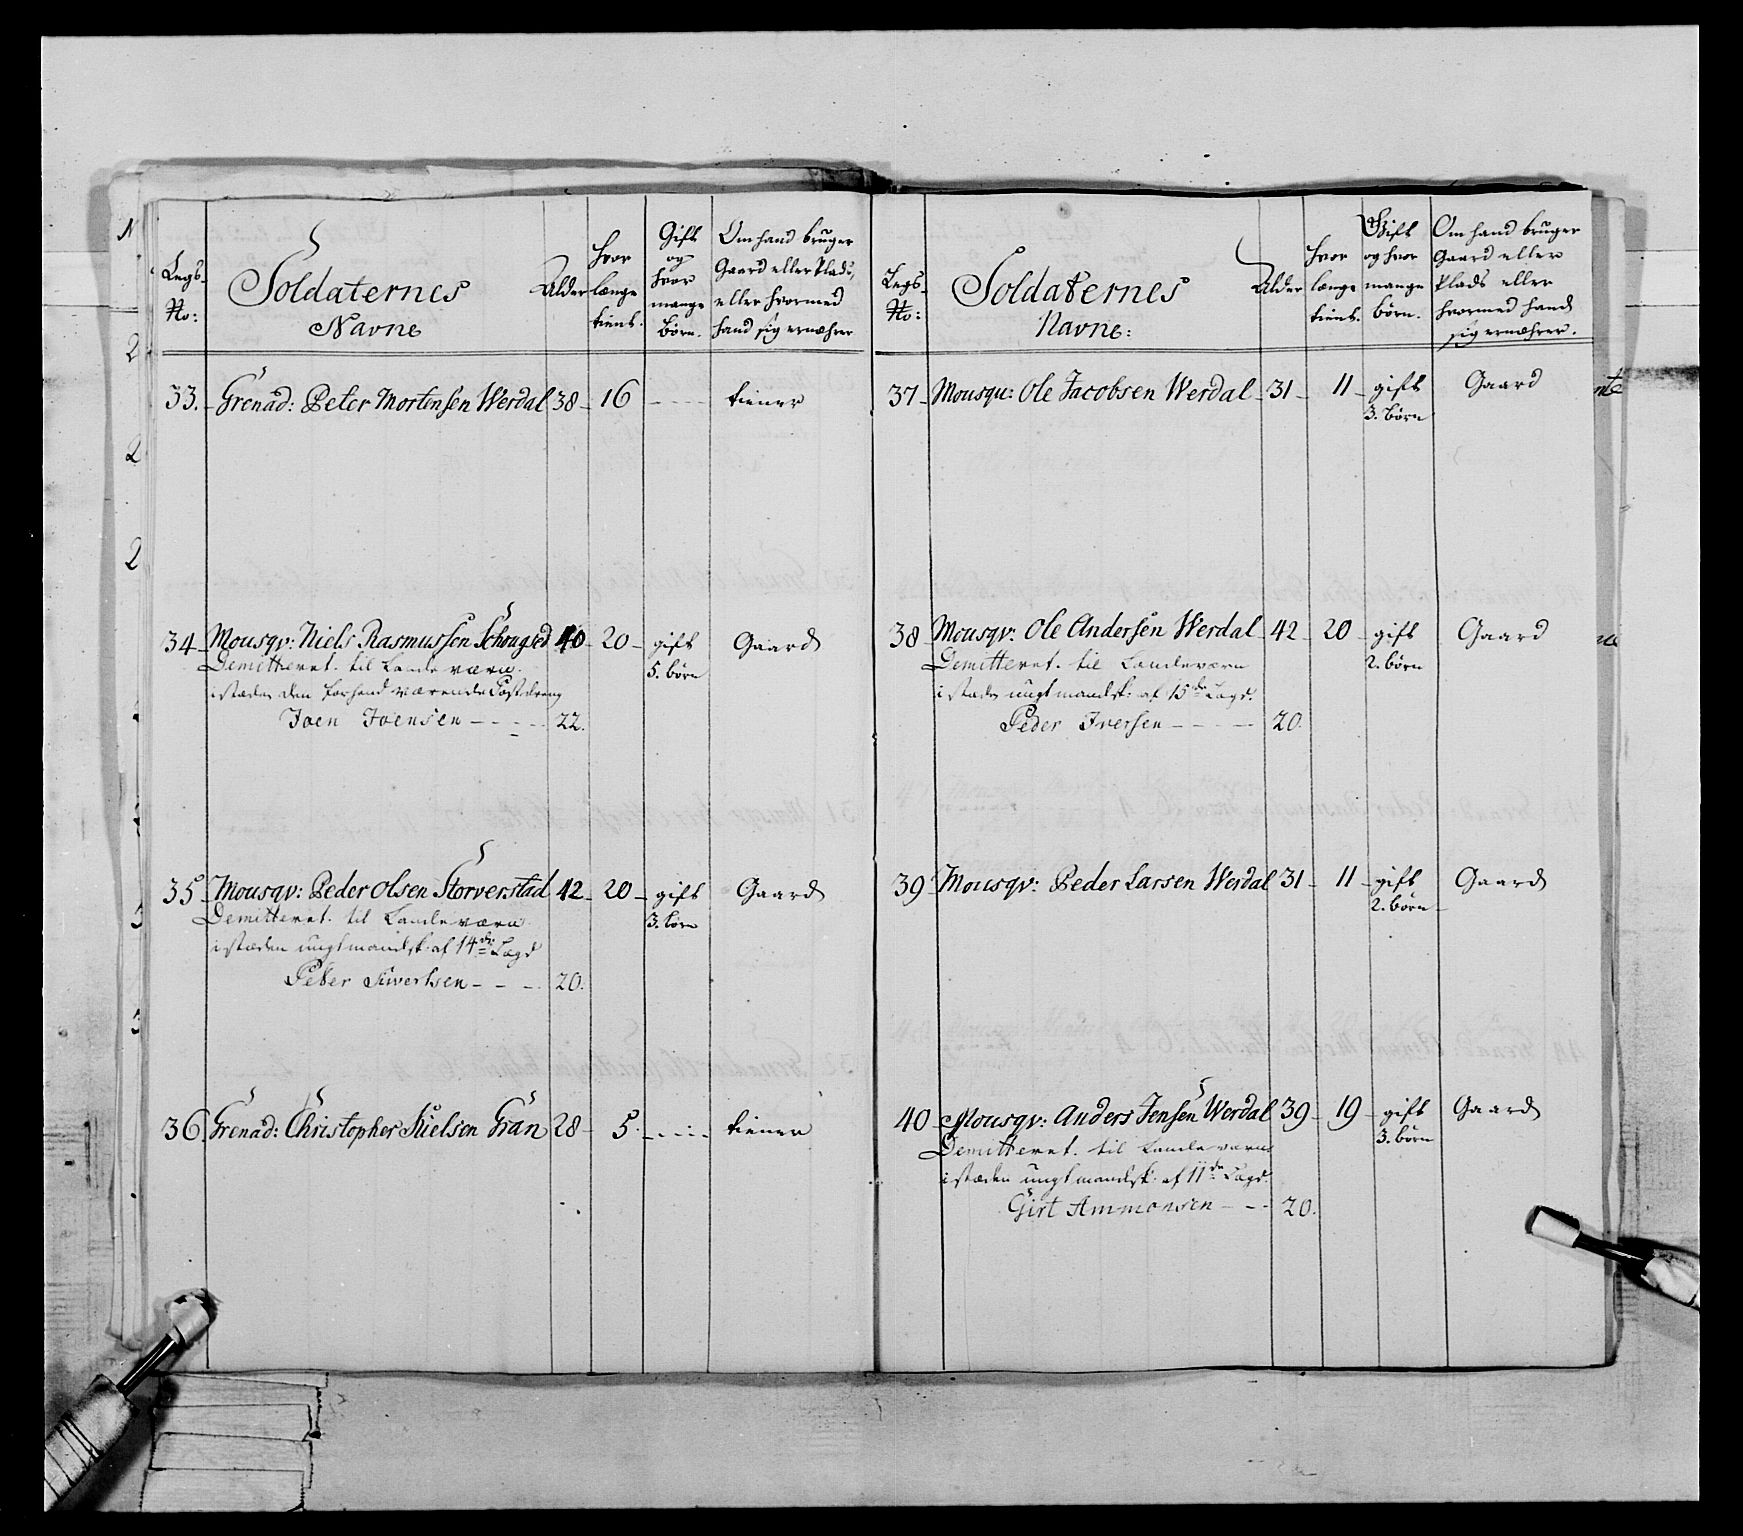 Legs- No:
Soldaternes Navne
Alder
hvor længe tient.
Gift og hvor mange Børn.
Om hand bruger Gaard eller Plads, eller hvormed hand sig ernæhrer
33. Grenad: Peter Mortensen Werdal 38 - 16 - - - - tiener
34 - Mousqv: Niels Rasmussen 40 - 20 - gift Gaard
5. børn
Demitteret til Landeværn
i stæden den forhend værende
Joen Joensen - - - - 22.
35 - Mousqv: Peder Olsen Storverstad 42 - 20 - gift Gaard
3. børn
Demitteret til Landeværn
i stæden ungt mandsk. af 14de Lægd
Peter Siwertsen - - - 20.
36 Grenad: Christopher Nielsen Gran 28 - 5. - - - - tiener
Legs- No:
Soldaternes Navne:
Alder
hvor længe tient.
Gift og hvor mange børn.
Om hand bruger Gaard eller Plads eller hvormed hand sig ernæhrer.
37 - Mousqu: Ole Jacobsen Werdal - 31 - 11 - gift Gaard
3. børn
38 - Mousqv: Ole Andersen Werdal - 42 - 20 - gift Gaard
2. børn
Demitteret til Landeværn
i stæden ungt mandsk: af 15de Lægd.
Peder Iversen - - - - 20.
39 - Mousqv: Peder Larsen Werdal 31 - 11 - gift Gaard
2. børn
40 - Mousqv: Anders Jensen Werdal 39 - 19 - gift Gaard
3. børn
Demitteret til Landeværn
i stæden ungt mandsk. af 11de Lægd.
Girt Ammonsen - - - 20.